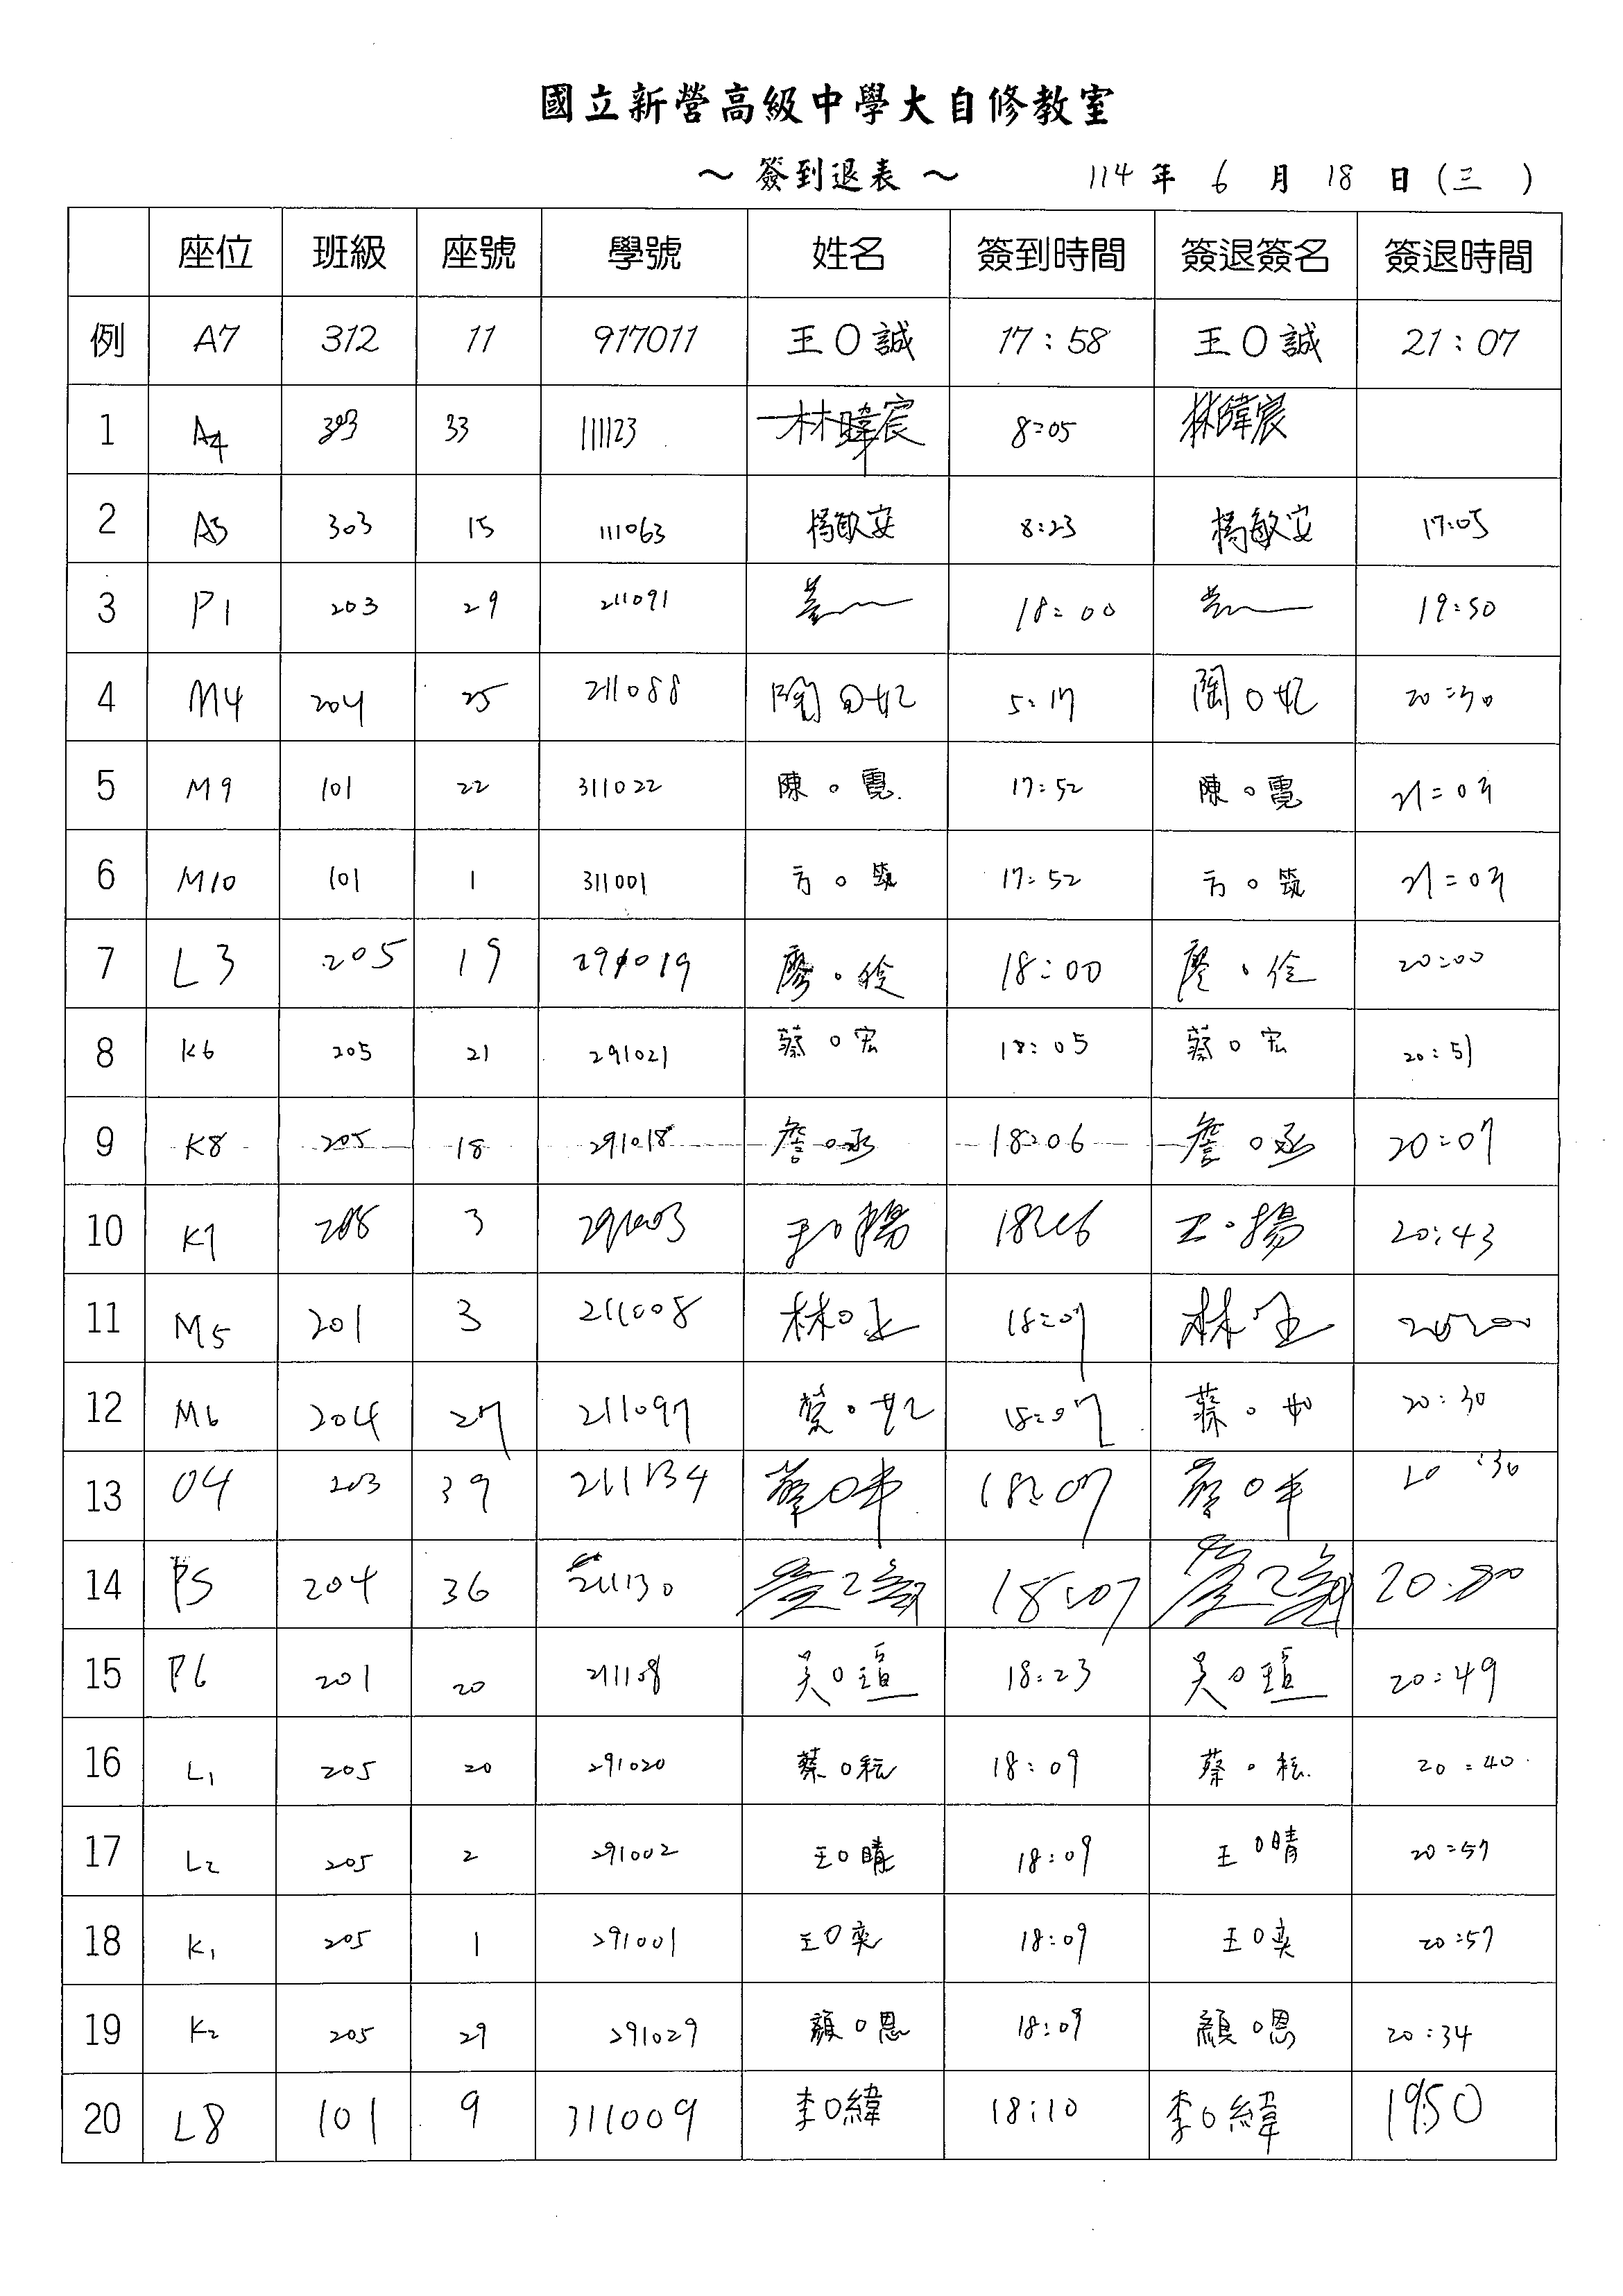 國立新營高級中學大自修教室
～ 簽到退表 ～ 114 年 6 月 18 日 (三 )
座位 班級 座號 學號 姓名 簽到時間 簽退簽名 簽退時間
例 A7 312 11 917011 王O誠 17:58 王O誠 21:07
1 A4 303 33 111123 林暐宸 8:05 林暐宸
2 A5 303 15 111063 楊敏安 8:23 楊敏安 17:05
3 P1 203 29 211091 18:00 19:50
4 M4 204 25 211088 陶O妃 5:17 陶O妃 20:30
5 M9 101 22 311022 陳O霓 17:52 陳O霓 21:03
6 M10 101 1 311001 方O筑 17:52 方O筑 21:03
7 L3 205 19 291019 廖O 18:00 廖O 20:00
8 K6 205 21 291021 蔡O宏 18:05 蔡O宏 20:51
9 K8 205 18 291018 詹O丞 18:06 詹O丞 20:07
10 K7 205 3 291003 王O揚 18:06 王O揚 20:43
11 M5 201 3 211008 林O 18:07 林O 20:00
12 M6 204 27 211097 蔡O妃 18:07 蔡O 20:30
13 O4 203 39 211134 蔡O 18:07 蔡O 20:30
14 P5 204 36 211130 18:07 20:00
15 P6 201 20 211108 吴O瑄 18:23 吴O瑄 20:49
16 L1 205 20 291020 蔡O耘 18:09 蔡O耘 20:40
17 L2 205 2 291002 王O晴 18:09 王O晴 20:57
18 K1 205 1 291001 王O奕 18:09 王O奕 20:57
19 K2 205 29 291029 顏O恩 18:09 顏O恩 20:34
20 L8 101 9 311009 李O緯 18:10 李O緯 1950